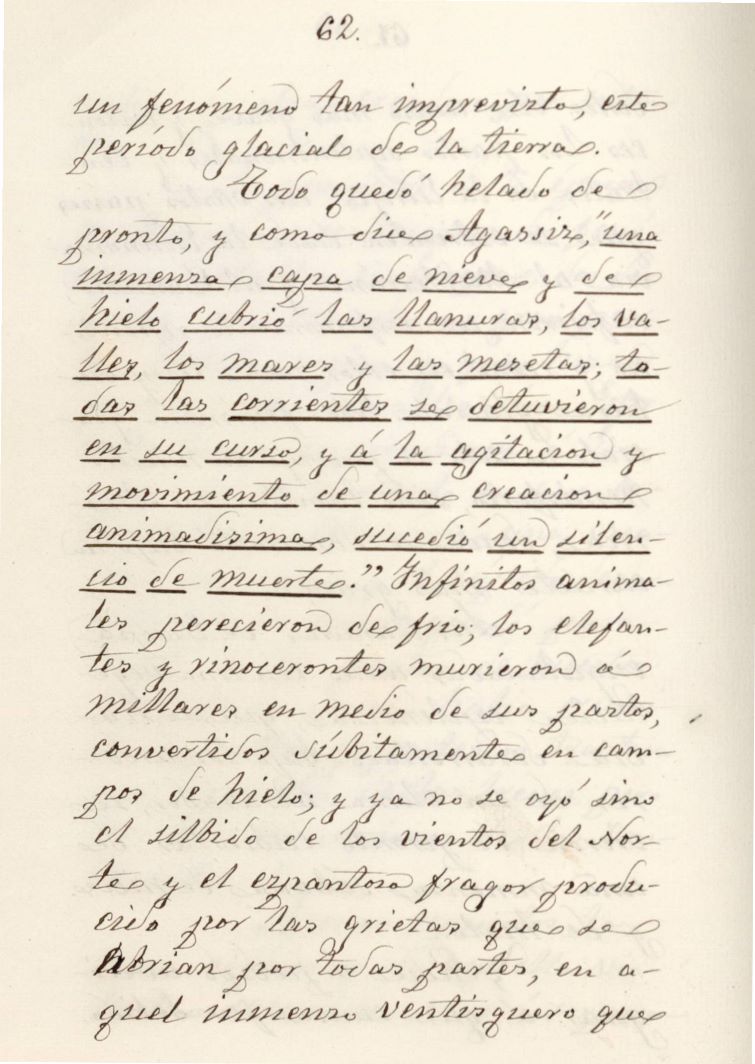 62.
un fenómeno tan imprevisto, este
período glacial de la tierra.
Todo quedó helado de
pronto, y como dice Agassiz, "una
inmensa capa de nieve y de
hielo cubrió las llanuras, los va-
lles, los mares y las mesetas; to-
das las corrientes se detuvieron
en su curso, y á la agitacion y
movimiento de una creacion
animadisima, sucedió un silen-
cio de muerte." Infinitos anima-
les perecieron de frio; los elefan-
tes y rinocerontes murieron á
millares en medio de sus pastos,
convertidos súbitamente en cam-
pos de hielo; y ya no se oyó sino
el silbido de los vientos del Nor-
te y el espantoso fragor produ-
cido por las grietas que se
abrian por todas partes, en a-
quel inmenso ventisquero que